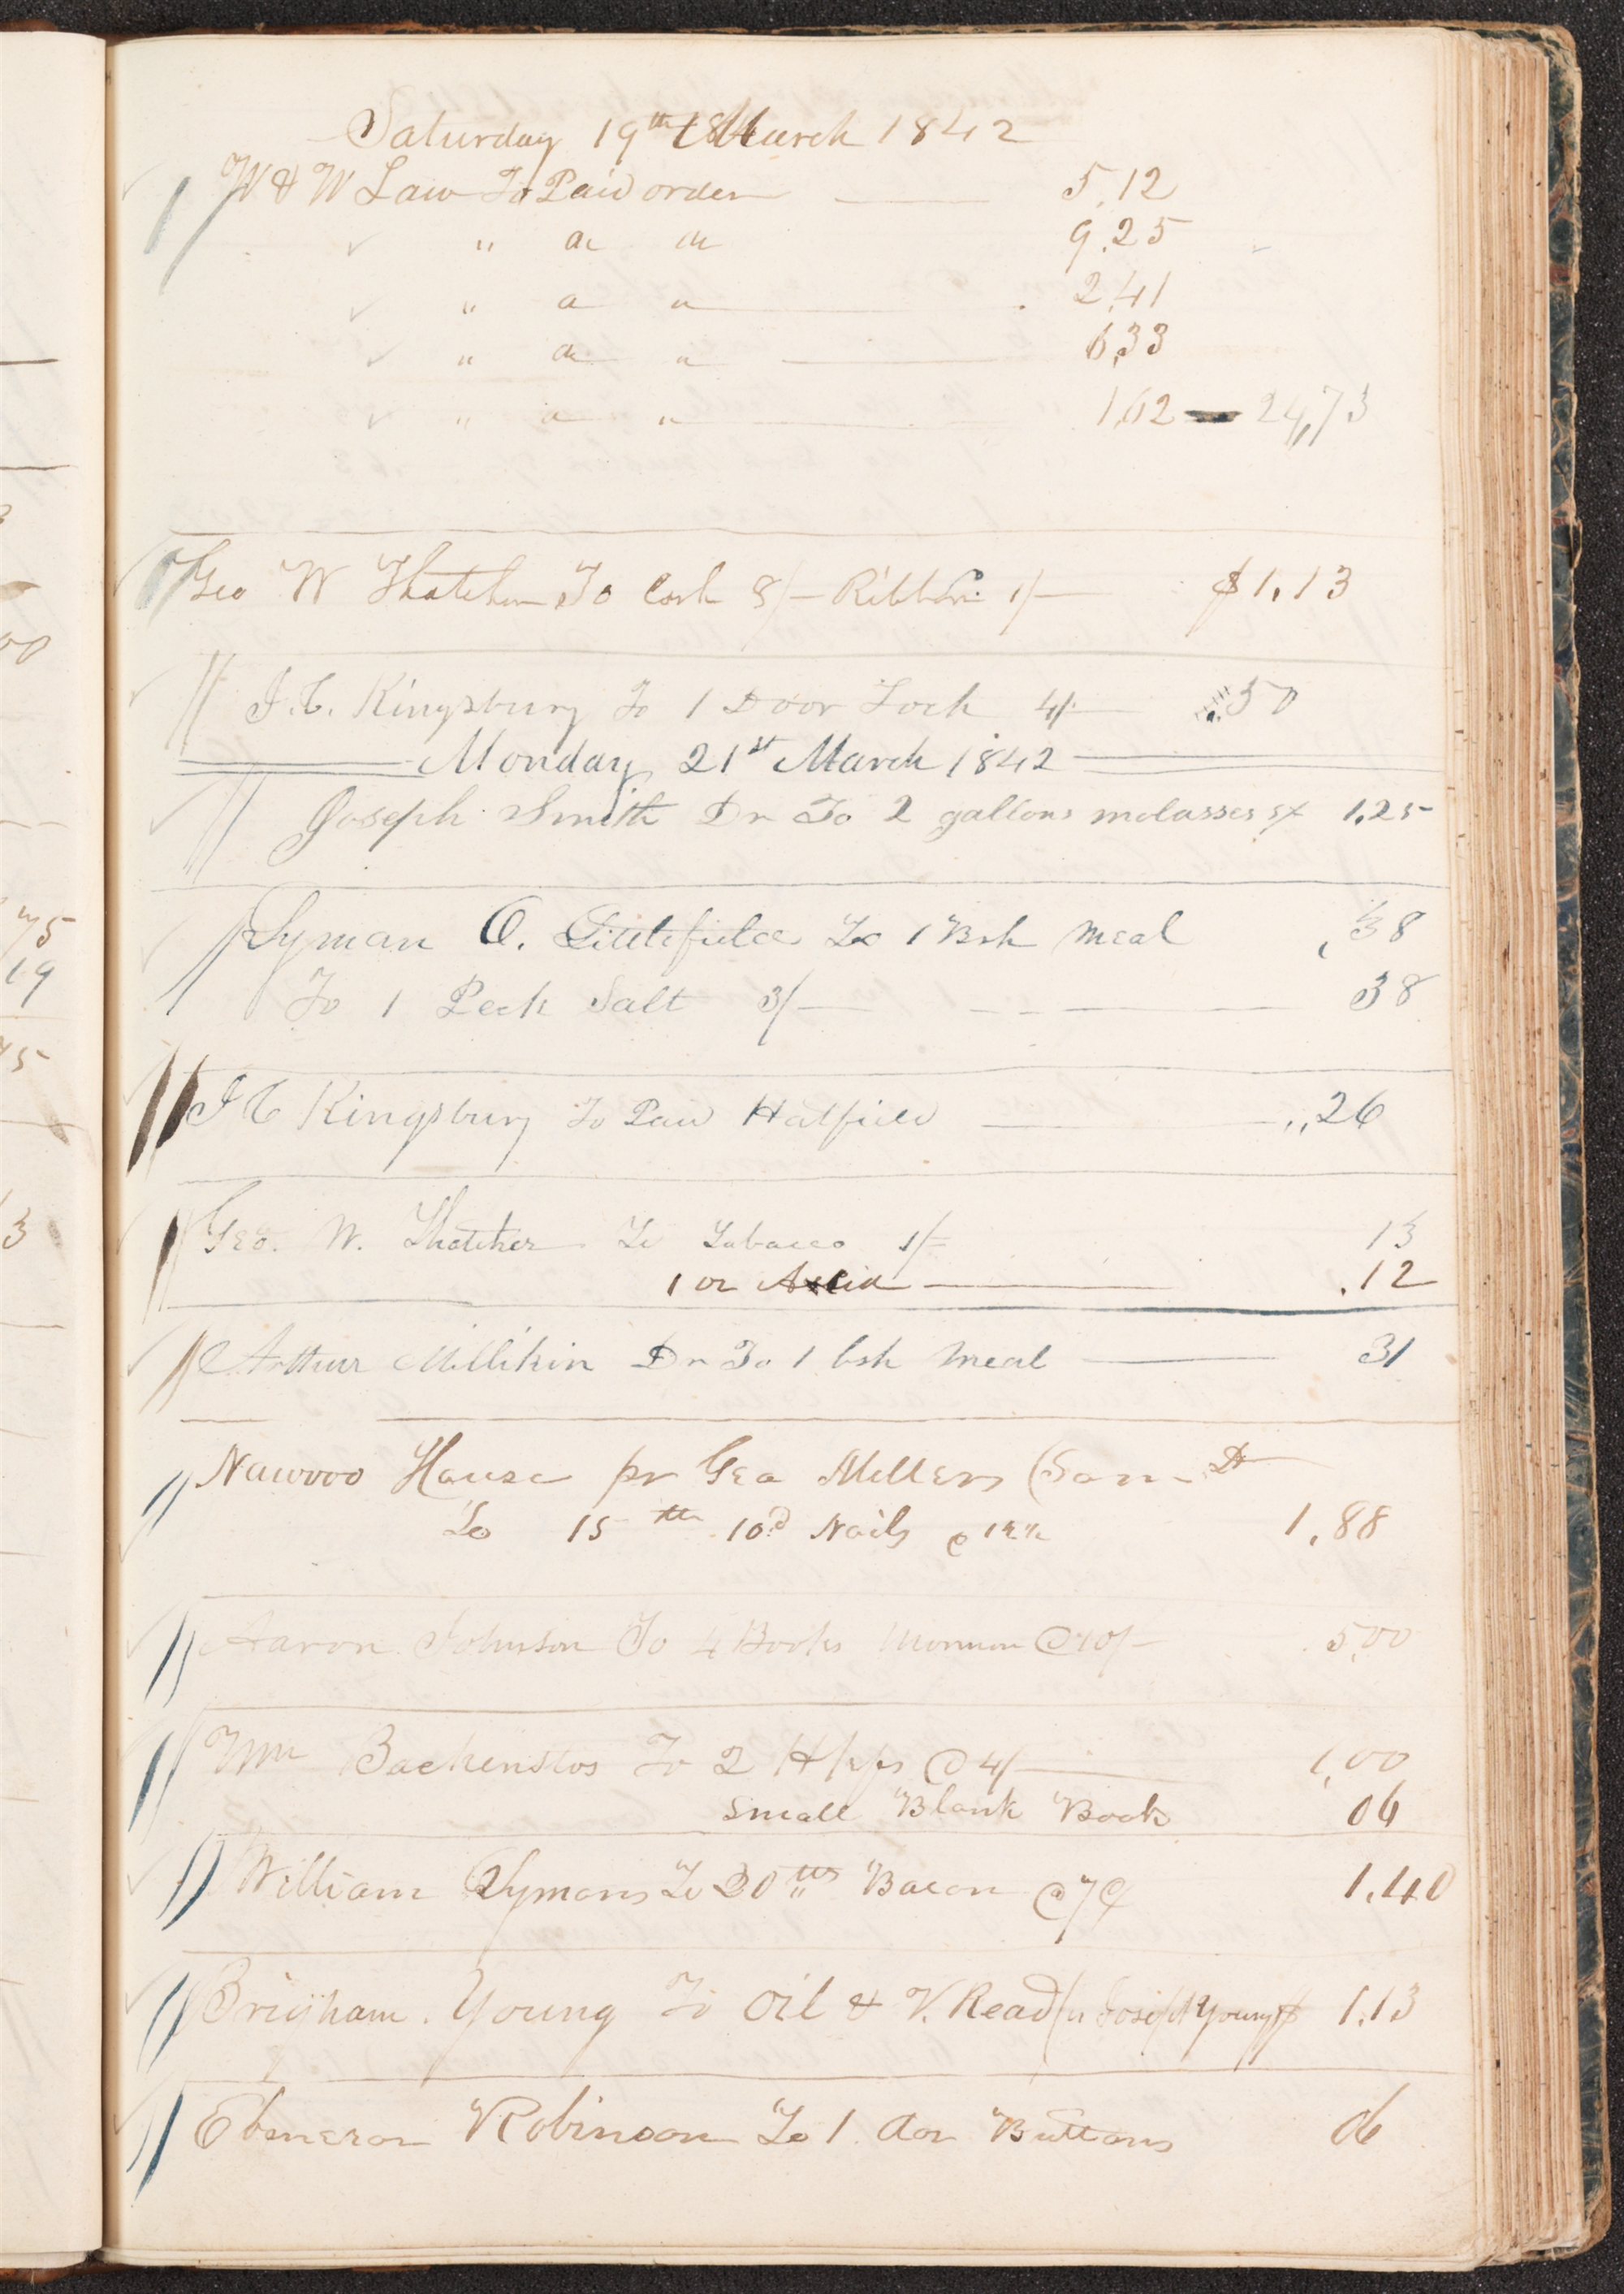 Saturday 19th March 1842
W & W Law To Paid order 5.12
" " " 9.25
" " " 2.41
" " " 6.33
" " " 1.62 — 24,73
Geo W Thatcher To Cash 8/– Ribbon 1/– $1.13
J. C. Kingsbury To 1 Door Lock 4/– .50
Monday, 21st March 1842
Joseph Smith Dr To 2 gallons molasses 5/ 1.25
Lyman O. Littlefield To 1 Bsh Meal ,38
To 1 Peck Salt 3/– 38
J C Kingsbury To Paid Hatfield ,,26
Geo. W. Thatcher To Tobacco 1/= 13
1 oz .12
Arthur Millikin Dr To 1 bsh Meal 31
Nauvoo House pr Geo Millers Son Dr
To 15 lb 10d Nails @ 12½ 1.88
Aaron Johnson To 4 Books Mormon @ 10/– 5,00
Wm Backenstos To 2 Hkfs @ 4/– 1,00
Small Blank Book 06
William Symons To 20 lbs Bacon @ 7¢ 1.40
Brigham. Young To Oil & V. Read (pr Joseph Young) $ 1.13
Ebenezer Robinson To 1. doz Buttons 06
75
19